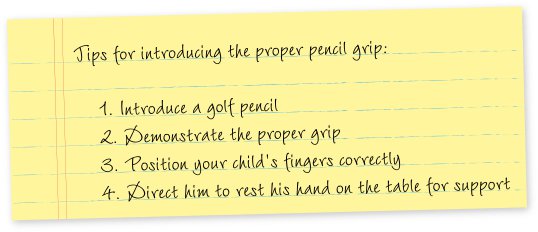 Tips for introducing the proper pencil grip:
1. Introduce a golf pencil
2. Demonstrate the proper grip
3. Position your child's fingers correctly
4. Direct him to rest his hand on the table for support